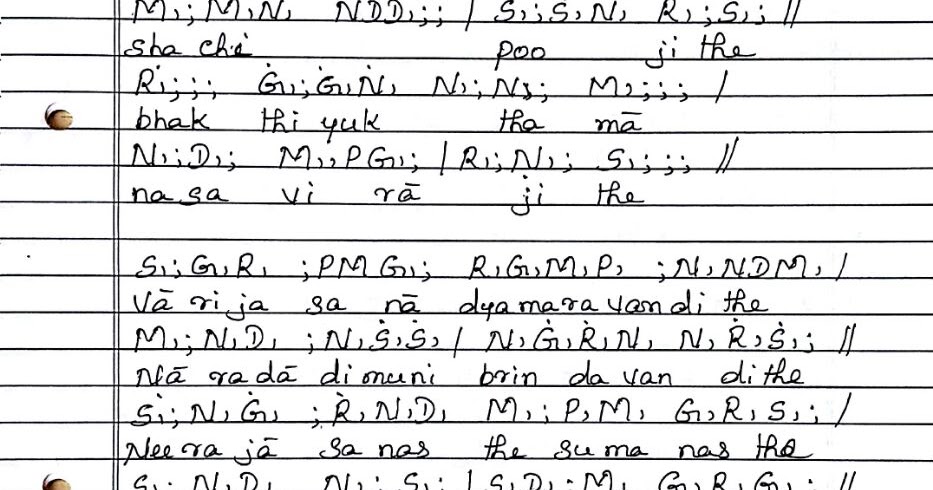 M,; M,N, NDD,;; / S,;S,N, R,;S,; //
sha che poo ji the
Ṙ;;; Ġ,;Ġ,Ṅ, N,;N,; M,;;; /
bhak thi yuk tha mā
N,;D,; M,,PG,; / R,;N,; S,;;; //
na sa vi rā ji the
S,;G,R, ;PMG,; R,G,M,P, ;N,NDM, /
Vā ri ja sa nā dya ma ra van di the
M,;N,D, ;N,Ṡ,Ṡ, / N,Ġ,Ṙ,N, N,Ṙ,Ṡ,; //
Nā ra dā di muni brin da van di the
Ṡ,;N,Ġ, ;Ṙ,N,D, M,;P,M, G,R,S,; /
Nee ra jā sa nas the su ma nas the